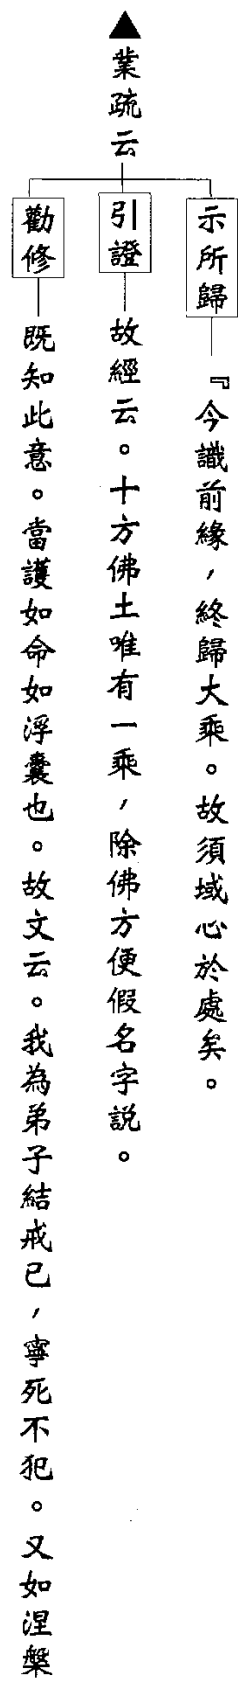 ▲業疏云
示所歸
『今識前緣，終歸大乘。故須域心於處矣。
引證
故經云。十方佛土唯有一乘，除佛方便假名字說。
勸修
既知此意。當護如命如浮囊也。故文云。我為弟子結戒已，寧死不犯。又如涅槃